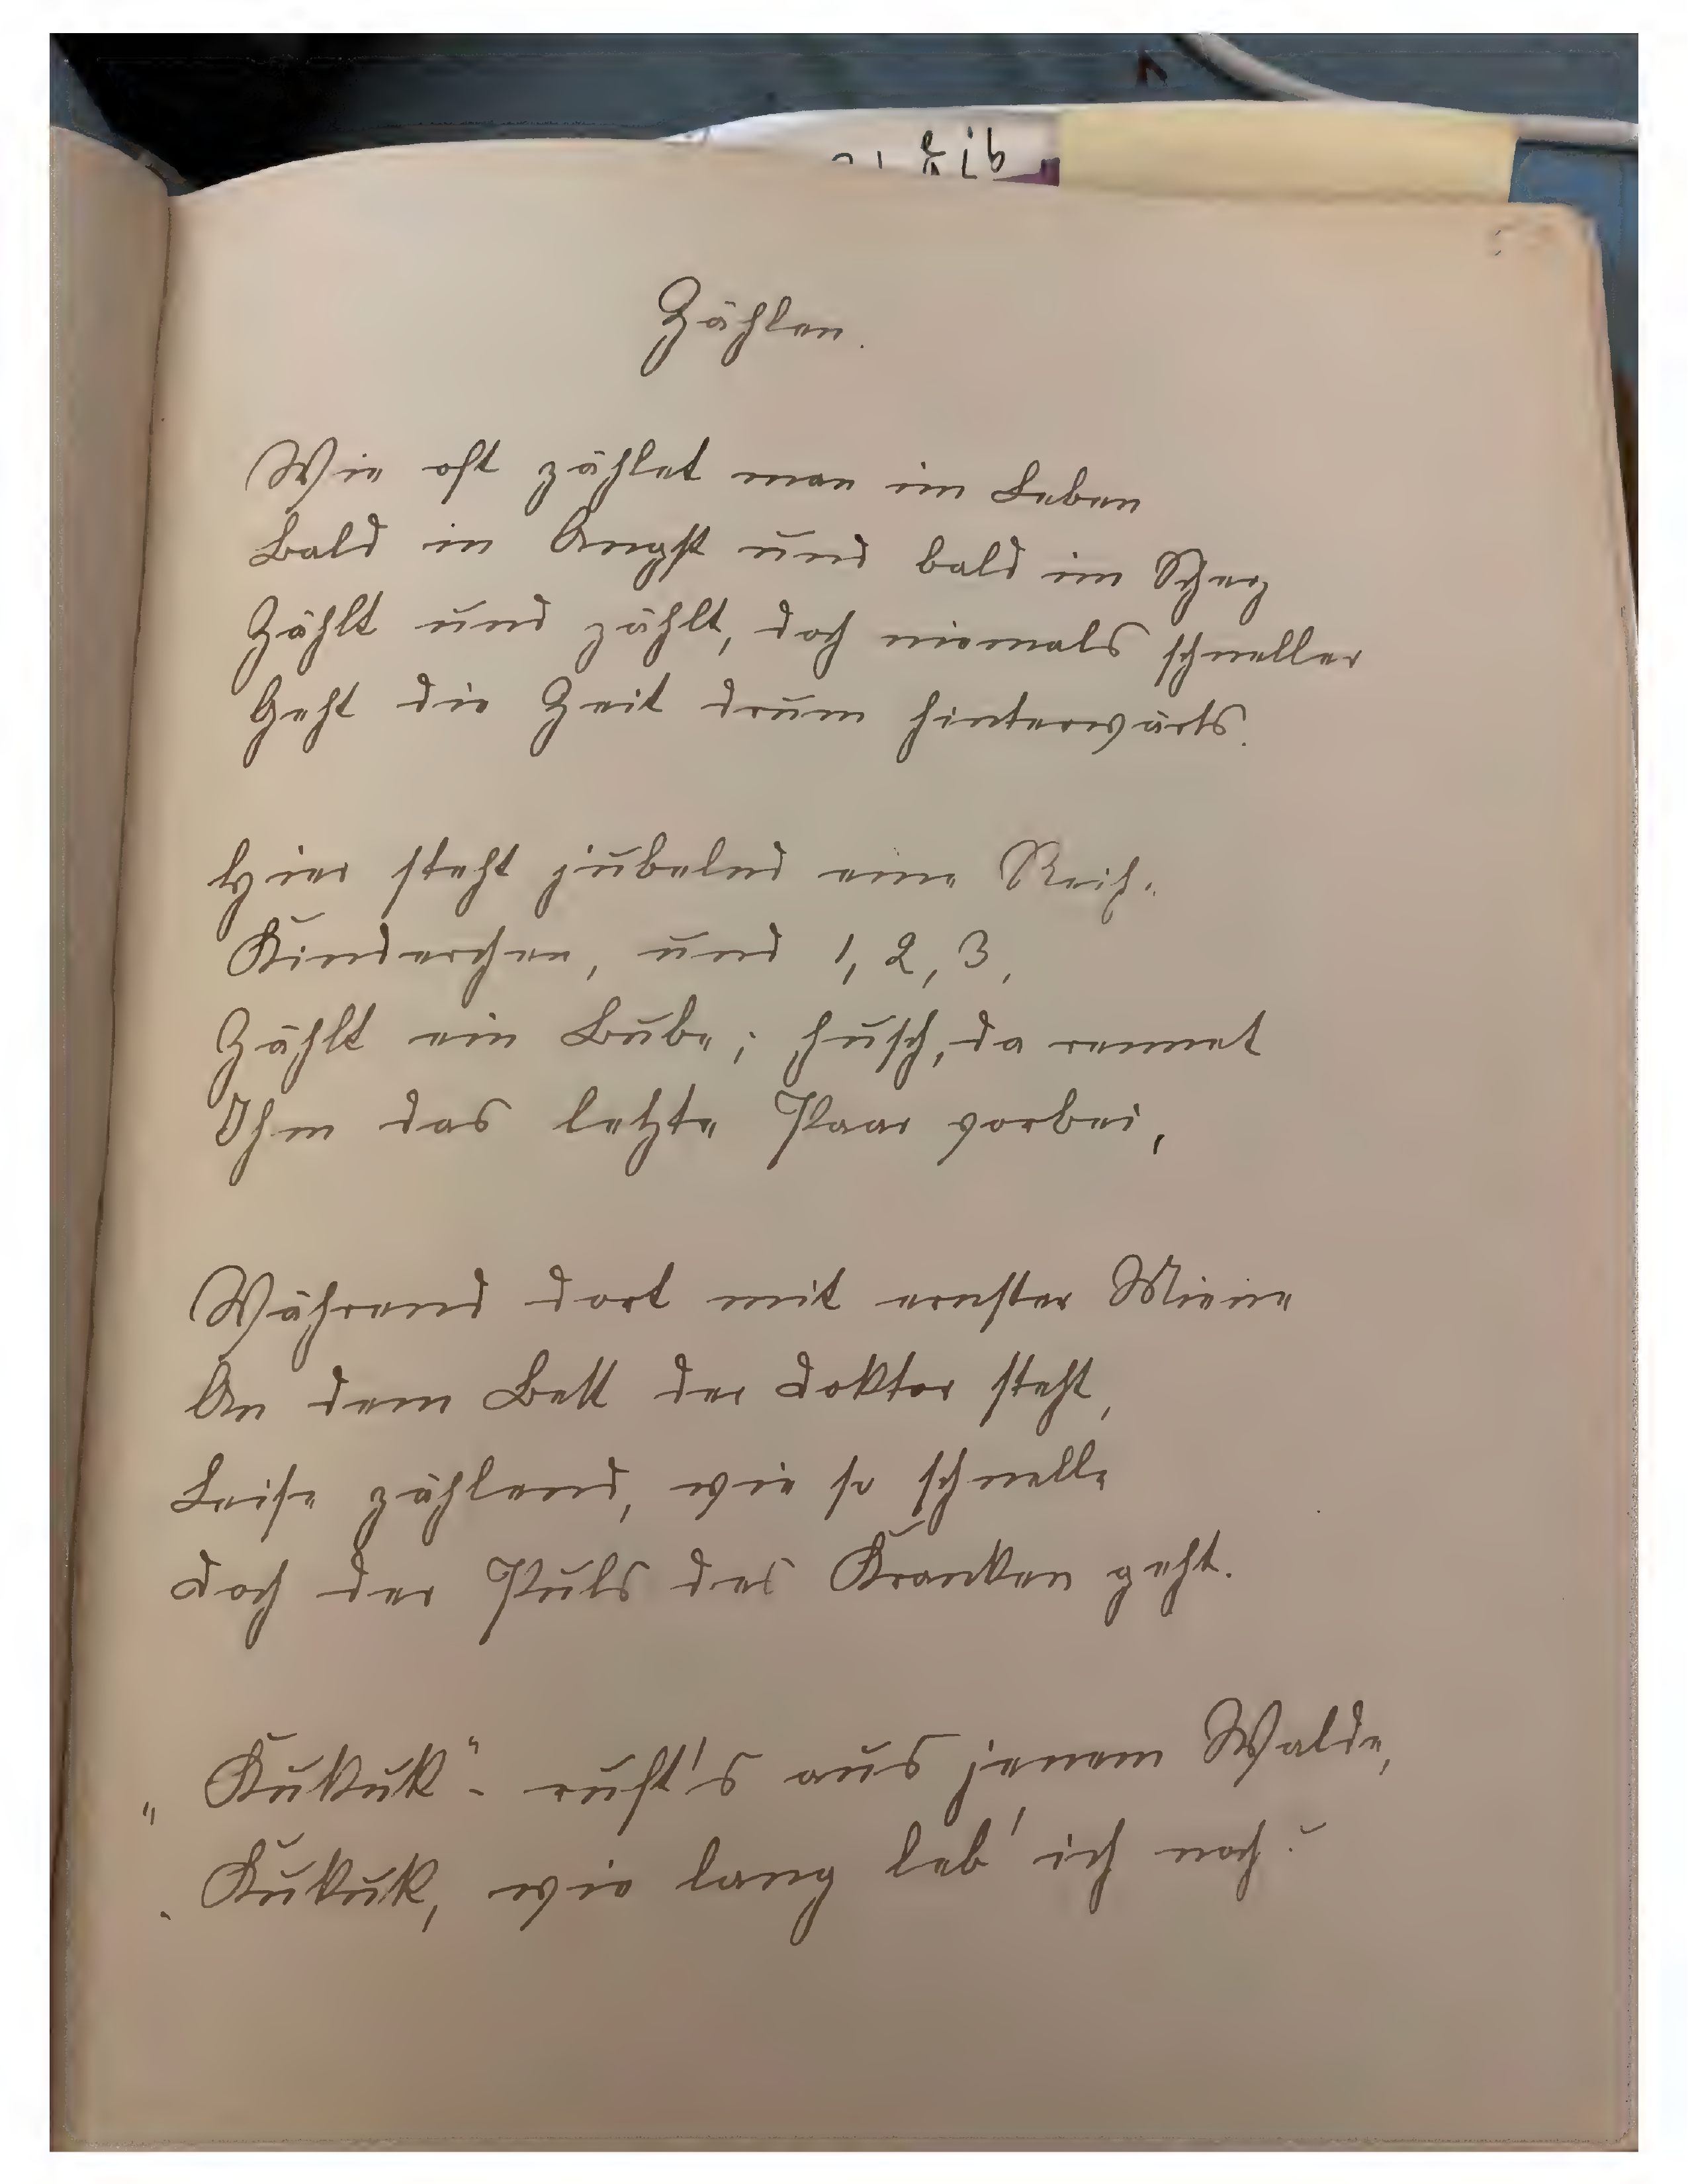 Zählen.
Wie oft zählet man im Leben
Bald in Angst und bald im Scherz
Zählt und zählt, doch niemals schneller
Geht die Zeit drum hinterwärts.
Hier steht jubelnd eine Reihe
Kinderchen, und 1, 2, 3,
Zählt ein Bube; husch, da rennet
Ihm das letzte Paar vorbei,
Während dort mit ernster Miene
An dem Bett der Doktor steht,
Leise zählend, wie so schnelle
Doch der Puls des Kranken geht.
"Kukuk" - ruft's aus jenem Walde,
"Kukuk, wie lang leb' ich noch?